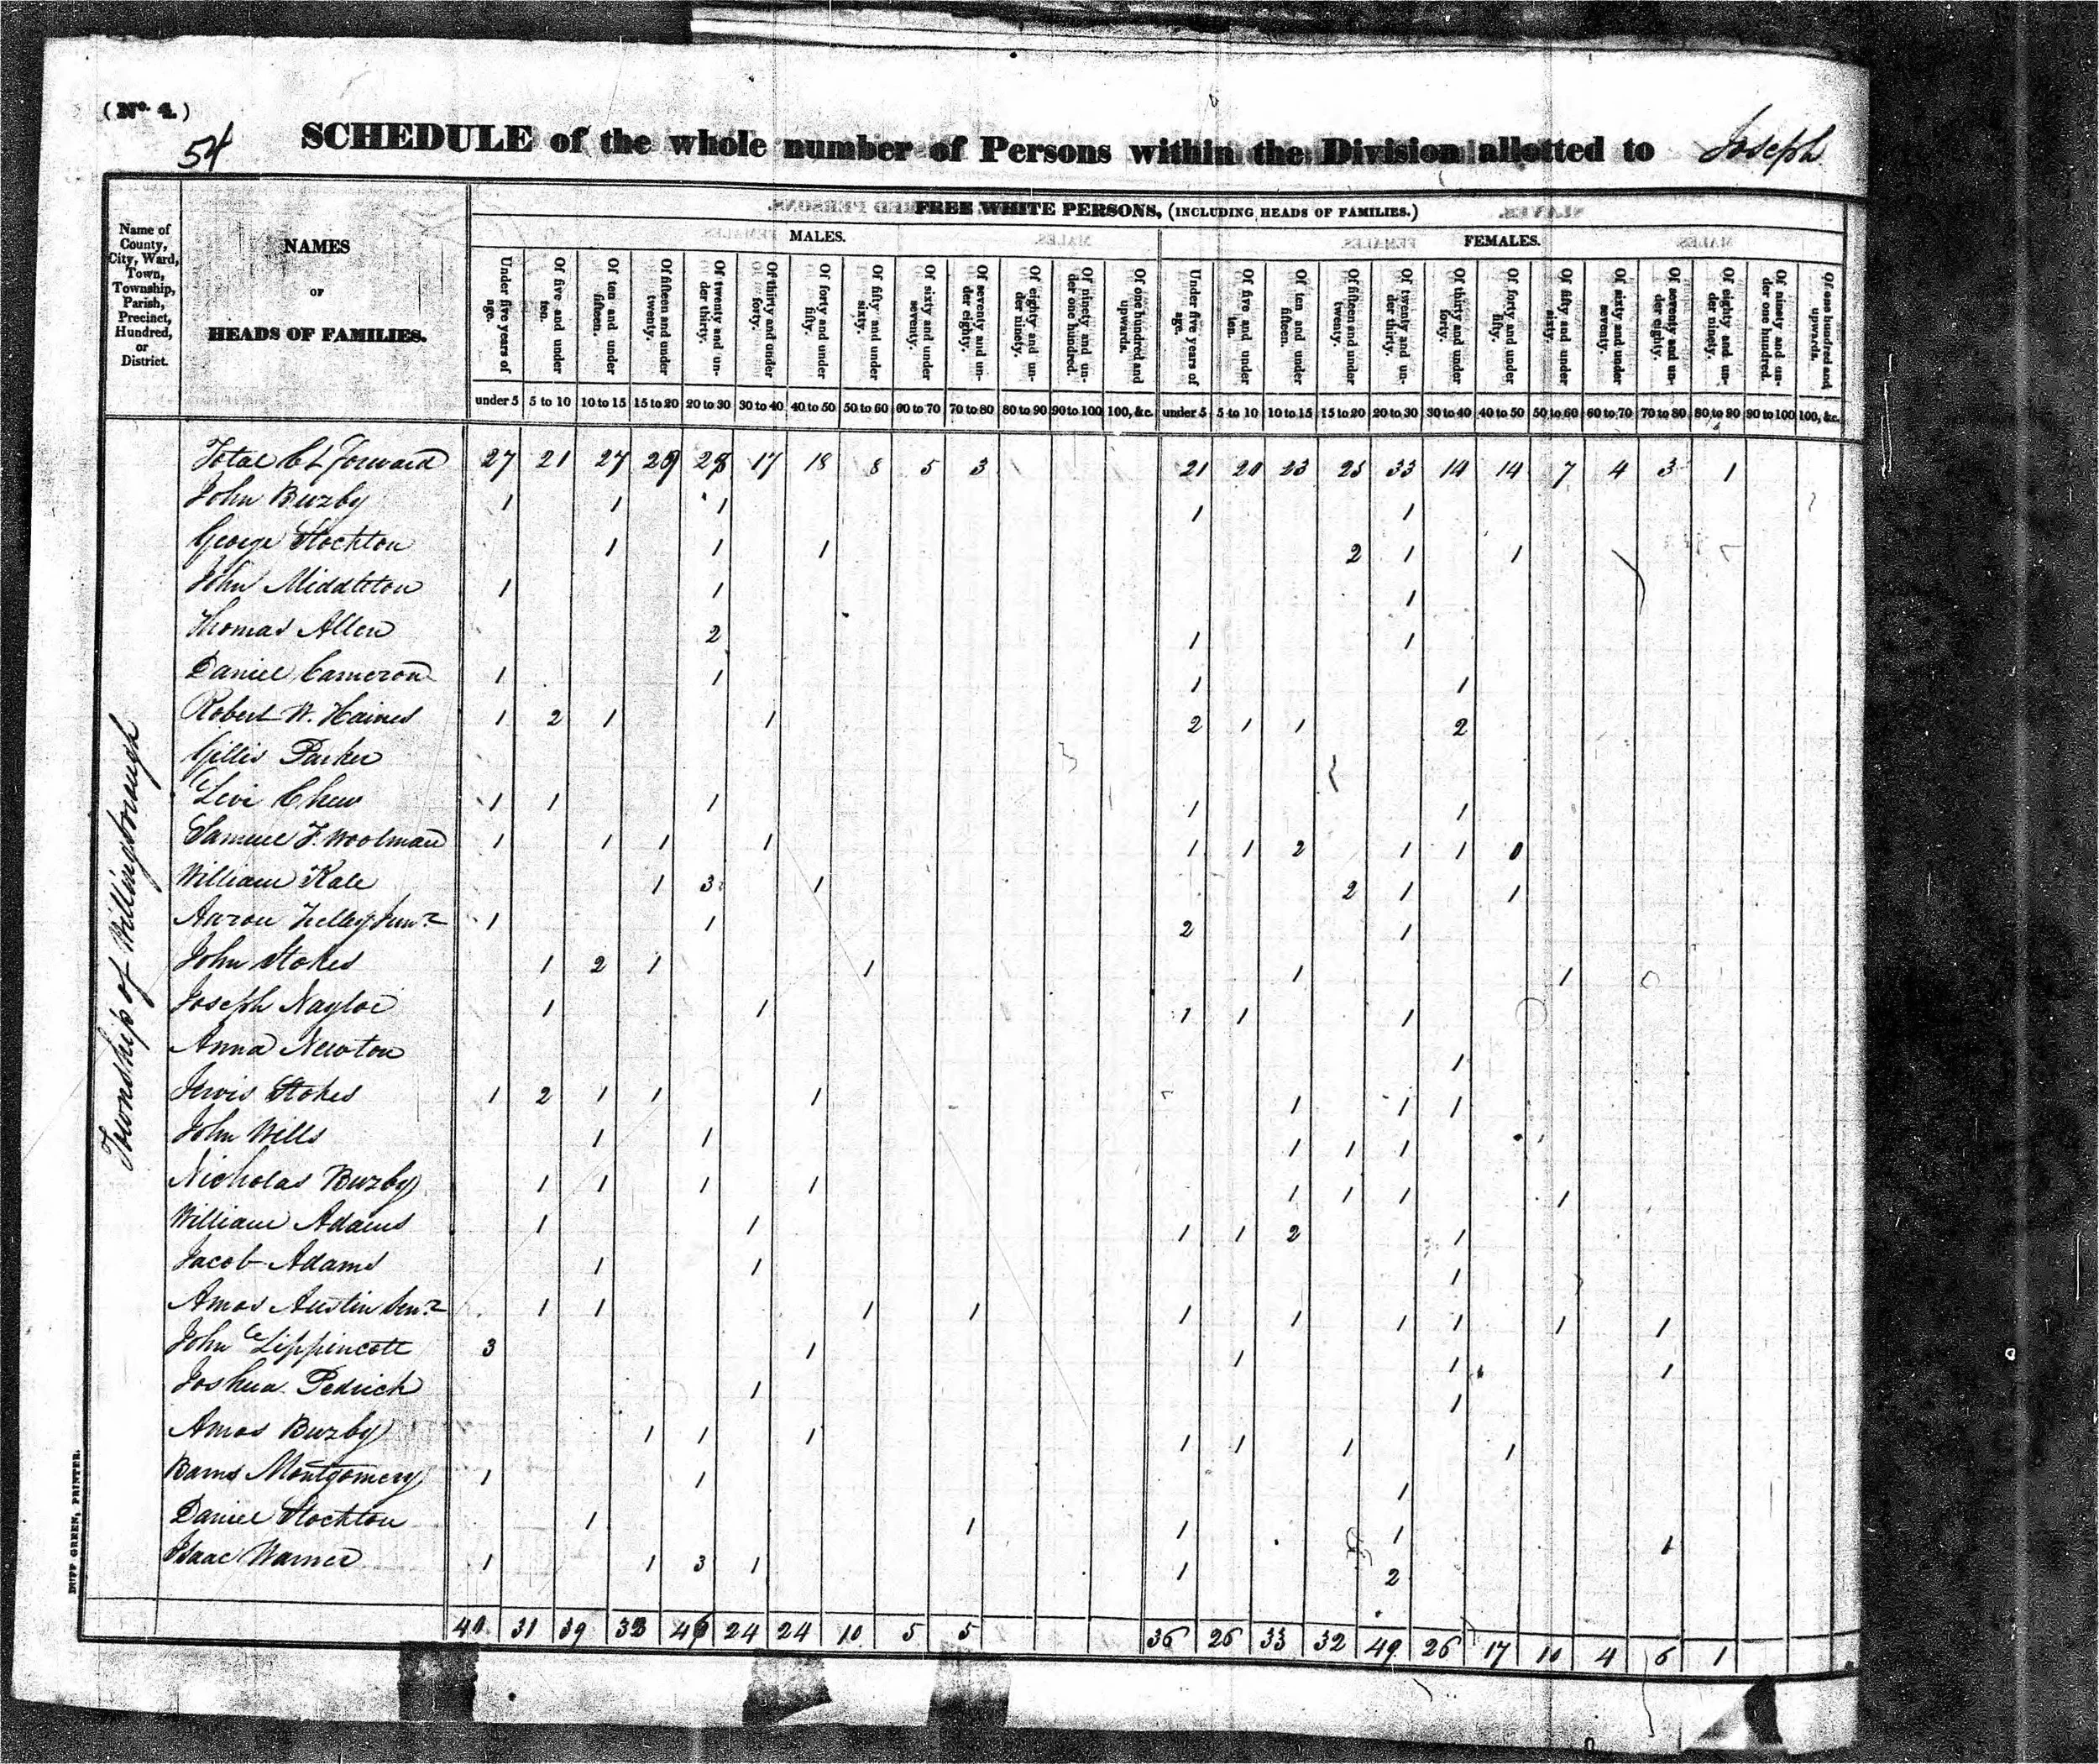 (No. 4.)
54
SCHEDULE of the whole number of Persons within the Division allotted to Joseph
Name of County, City, Ward, Town, Township, Parish, Precinct, Hundred, or District.
NAMES
OF
HEADS OF FAMILIES.
FREE WHITE PERSONS, (INCLUDING HEADS OF FAMILIES.)
MALES.
FEMALES.
Under five years of age. Of five and under ten. Of ten and under fifteen. Of fifteen and under twenty. Of twenty and under thirty. Of thirty and under forty. Of forty and under fifty. Of fifty and under sixty. Of sixty and under seventy. Of seventy and under eighty. Of eighty and under ninety. Of ninety and under one hundred. Of one hundred and upwards. Under five years of age. Of five and under ten. Of ten and under fifteen. Of fifteen and under twenty. Of twenty and under thirty. Of thirty and under forty. Of forty and under fifty. Of fifty and under sixty. Of sixty and under seventy. Of seventy and under eighty. Of eighty and under ninety. Of ninety and under one hundred. Of one hundred and upwards.
under 5 5 to 10 10 to 15 15 to 20 20 to 30 30 to 40 40 to 50 50 to 60 60 to 70 70 to 80 80 to 90 90 to 100 100, &c. under 5 5 to 10 10 to 15 15 to 20 20 to 30 30 to 40 40 to 50 50 to 60 60 to 70 70 to 80 80 to 90 90 to 100 100, &c.
Township of Willingborough
Total Forward 27 21 27 28 17 18 8 5 3 21 20 23 25 33 14 14 7 4 3 1
John Buzby 1 1 1 1 1
George Stockton 1 1 1 2 1 1
John Middleton 1 1 1
Thomas Allen 2 1 1
Daniel Cameron 1 1 1 1
Robert W. Haines 1 2 1 1 2 1 1 2
Gillis Parker
Levi Chew 1 1 1 1 1
Samuel F. Woolman 1 1 1 1 1 1 2 1 1 0
William Kale 1 3 1 2 1 1
Aaron Junr 1 1 2 1
John Stokes 1 2 1 1 1 1
Joseph Naylor 1 1 1 1 1
Anna Newton 1
Stokes 1 2 1 1 1 1 1 1
John Wills 1 1 1 1 1
Nicholas Buzby 1 1 1 1 1 1 1 1
William Adams 1 1 1 1 2 1
Jacob Adams 1 1 1
Amos Austin Senr 1 1 1 1 1 1 1 1 1 1
John Lippincott 3 1 1 1 1
Joshua Pedrick 1 1
Amos Buzby 1 1 1 1 1 1 1
Montgomery 1 1 1
Daniel Stockton 1 1 1 1 1
Isaac Warner 1 1 3 1 1 2
40 31 39 24 24 10 5 5 36 26 33 32 49 26 17 10 4 6 1
DUFF GREEN, PRINTER.